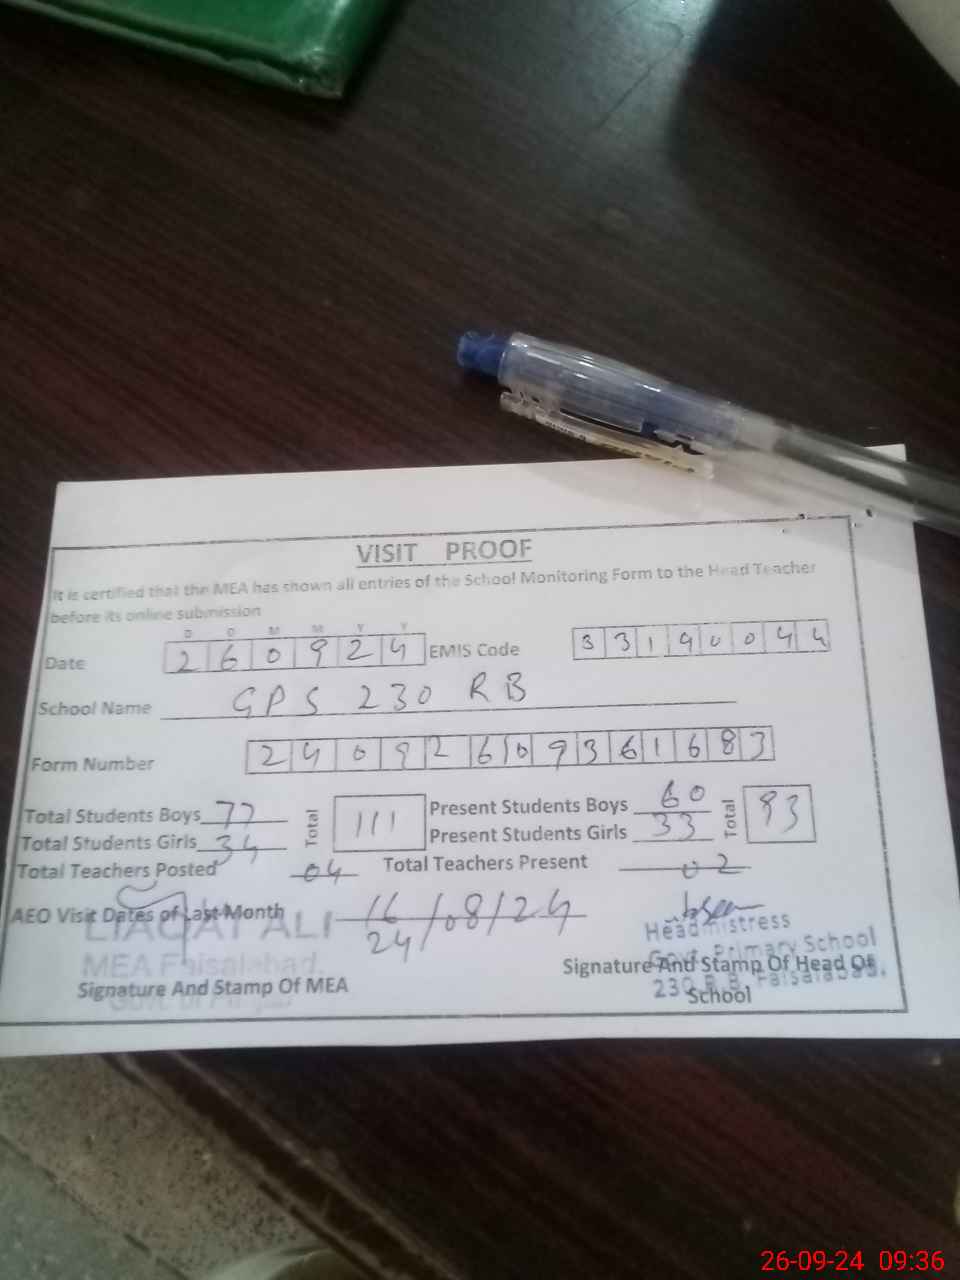 VISIT PROOF
It is certified that the MEA has shown all entries of the School Monitoring Form to the Head Teacher
before its online submission
D D M M Y Y
Date 2 6 0 9 2 4 EMIS Code 3 3 1 9 0 0 4 4
School Name GPS 230 RB
Form Number 2 4 0 9 2 6 0 9 3 6 1 6 8 3
Total Students Boys 77 Total 111 Present Students Boys 60 Total 93
Total Students Girls 34 Present Students Girls 33
Total Teachers Posted 04 Total Teachers Present 02
AEO Visit Dates of Last Month 16/08/24
24
LIAQAT ALI
MEA Faisalabad.
Signature And Stamp Of MEA
Headmistress
Govt. Primary School
230 R.B. Faisalabad.
Signature And Stamp Of Head Of
School
26-09-24 09:36